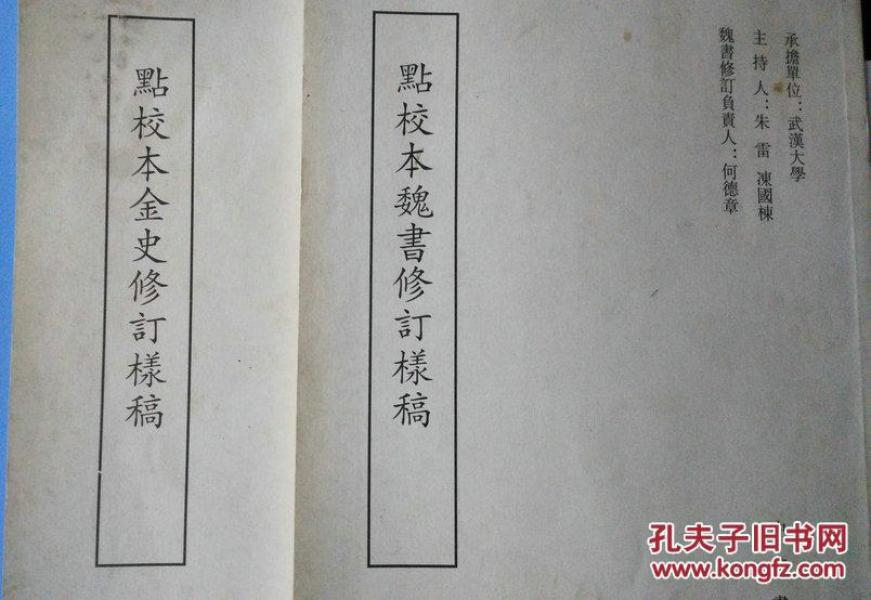 承擔單位：武漢大學
主持人：朱雷 凍國棟
魏書修訂負責人：何德章
點校本魏書修訂樣稿
點校本金史修訂樣稿
孔夫子旧书网
www.kongfz.com